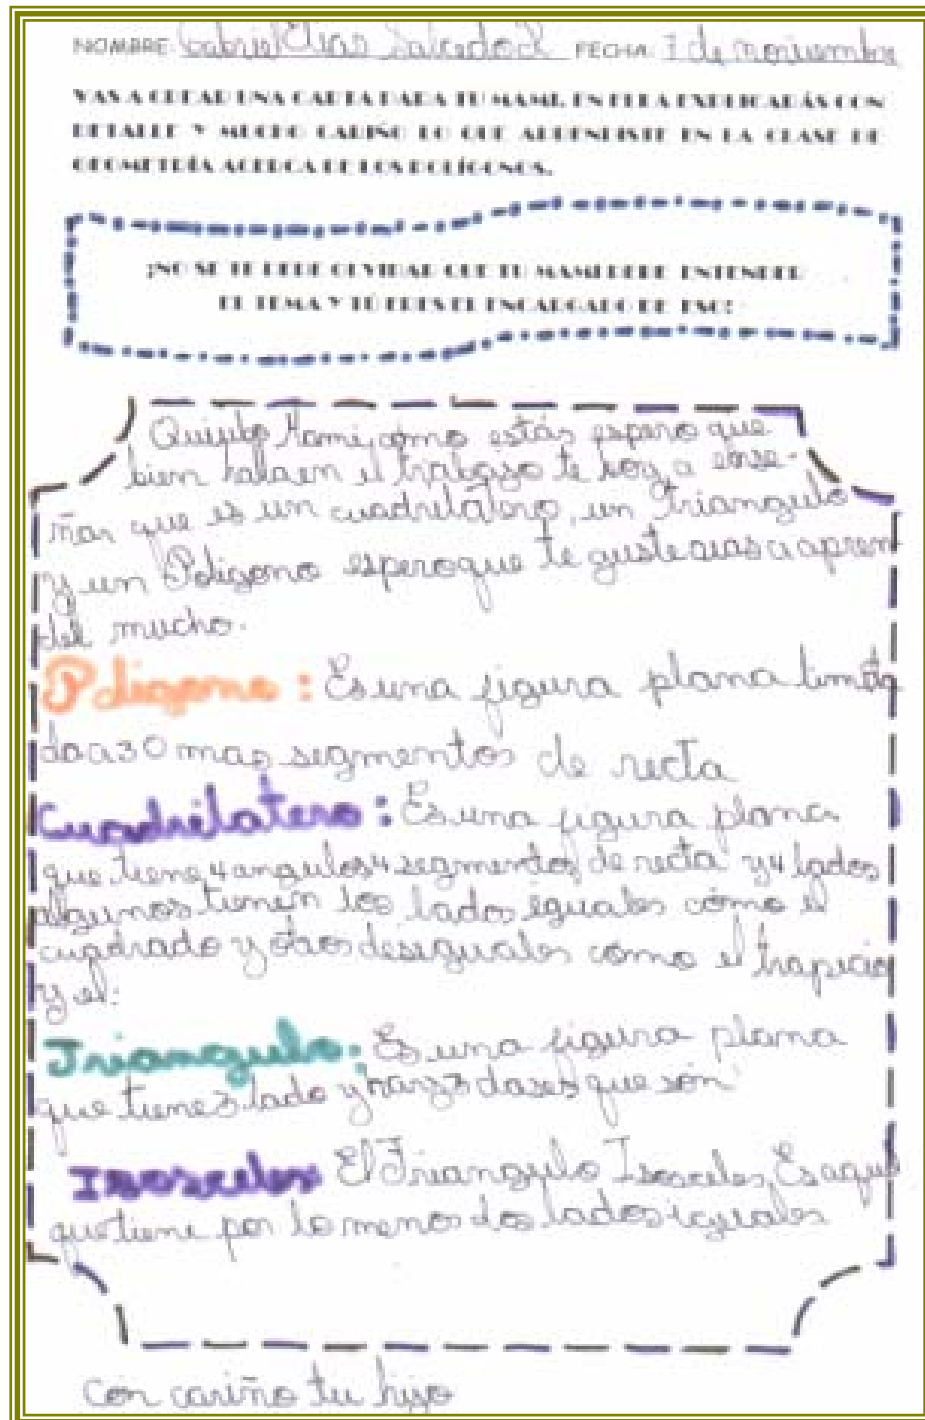 NOMBRE: Gabriel Elias Salcedo R FECHA: 7 de noviembre
VAS A CREAR UNA CARTA PARA TU MAMI, EN ELLA EXPLICARÁS CON
DETALLE Y MUCHO CARIÑO LO QUE APRENDISTE EN LA CLASE DE
GEOMETRÍA ACERCA DE LOS POLÍGONOS.
¡NO SE TE DEBE OLVIDAR QUE TU MAMI DEBE ENTENDER
EL TEMA Y TÚ ERES EL ENCARGADO DE ESO!
Quiubo Mami cómo estás espero que
bien en el trabajo te voy a ense-
ñar que es un cuadrilátero, un triangulo
y un Poligono espero que te guste a apren
del mucho.
Poligono: Es una figura plana
da a 3 o mas segmentos de recta
Cuadrilatero: Es una figura plana
que tiene 4 angulos 4 segmentos de recta y 4 lados
algunos tienen los lados iguales cómo el
cuadrado y otros desiguales cómo el trapecio
y el:
Triangulo: Es una figura plana
que tiene 3 lado y hay 3 clases que són
Isosceles El Triangulo Isosceles, Es aquel
que tiene por lo menos dos lados iguales
con cariño tu hijo